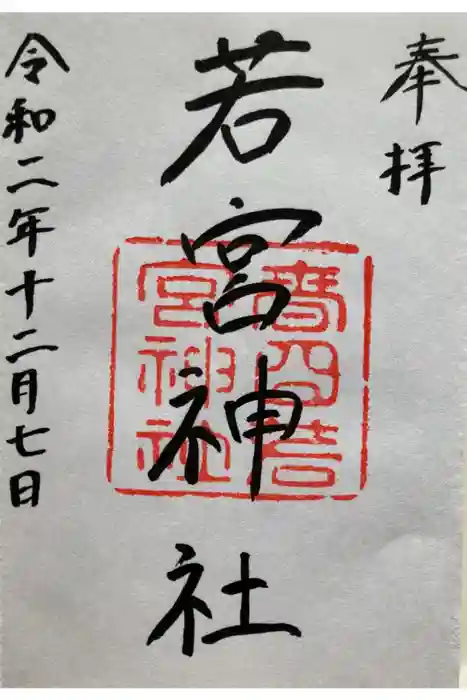 奉拝
若宮神社
令和二年十二月七日
宮神社